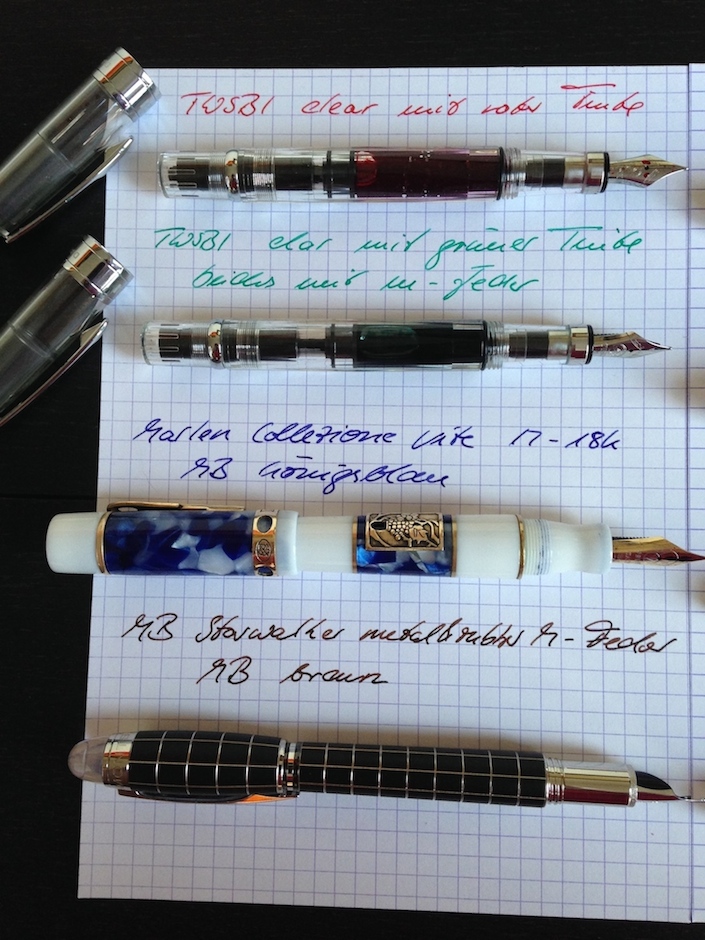 TWSBI clear mit roter Tinte
TWSBI clar mit grüner Tinte
beides mit M-Feder
Marlen Collezione Vite M-18k
MB Königsblau
MB Starwalker metal&rubber M-Feder
MB braun